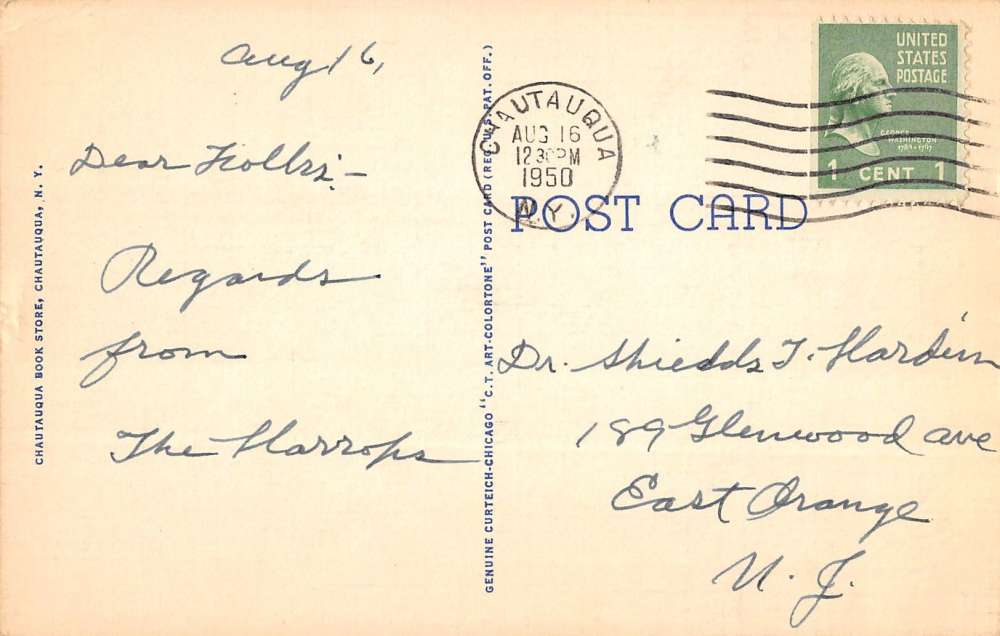 Aug 16,
Dear Folks:-
Regards
from
The Harrops
CHAUTAUQUA BOOK STORE, CHAUTAUQUA, N. Y.
GENUINE CURTEICH-CHICAGO "C.T. ART-COLORTONE" POST CARD (REG. U.S. PAT. OFF.)
CHAUTAUQUA
AUG 16
12 30PM
1950
N.Y.
UNITED
STATES
POSTAGE
GEORGE
WASHINGTON
1789-1797
1 CENT 1
POST CARD
Dr. Shields T. Hardin
189 Glenwood ave
East Orange
N. J.